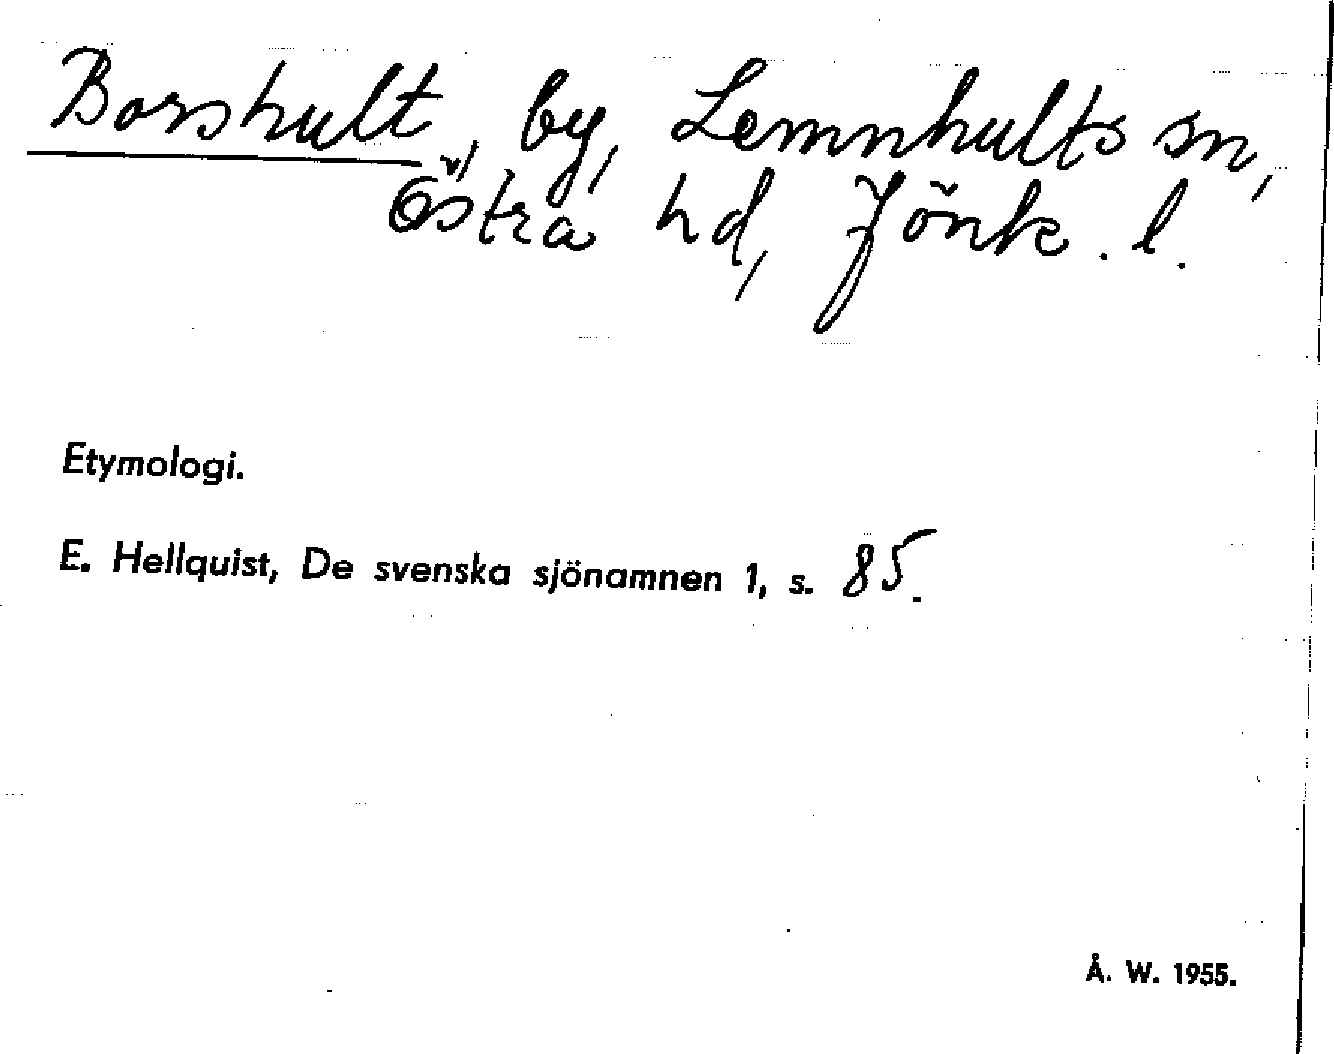 Borshult, by, Lemnhults sn,
Östra hd, Jönk. l.
Etymologi.
E. Hellquist, De svenska sjönamnen 1, s. 85.
Å. W. 1955.